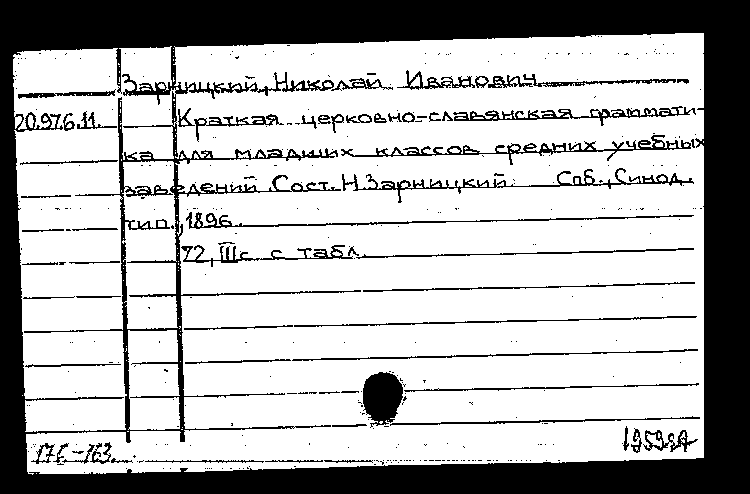 Зарницкий, Николай Иванович
20.97.6.11. Краткая церковно-славянская граммати-
ка для младших классов средних учебных
заведений. Сост. Н. Зарницкий. Спб., Синод.
тип., 1896.
72, III с. с табл.